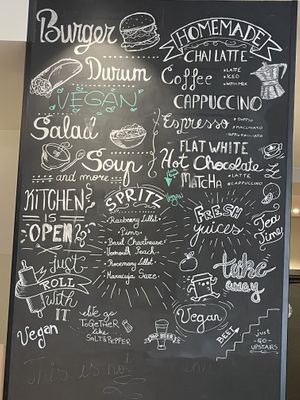 Burger
Durum
VEGAN
Salad
Soup
and more...
KITCHEN
IS
OPEN
Just
ROLL
With
IT
Vegan
We go
TOGETHER
like
SALT & PEPPER
SPRITZ
Raspberry Lillet
Pimms
Basil Chartreuse
Vermouth Peach
Rosemary Lillet
Maracuja
HOMEMADE
CHAI LATTE
Coffee
• LATTE
• ICED
CAPPUCCINO
Espresso
• DOPPIO
• MACCHIATO
FLAT WHITE
Hot Chocolate
MaTcHa
• LATTE
• CAPPUCCINO
Vegan
FRESH
juices
Tea
Time
take
away
Vegan
BEER
BEET
just
-GO-
UPSTAIRS
This is not